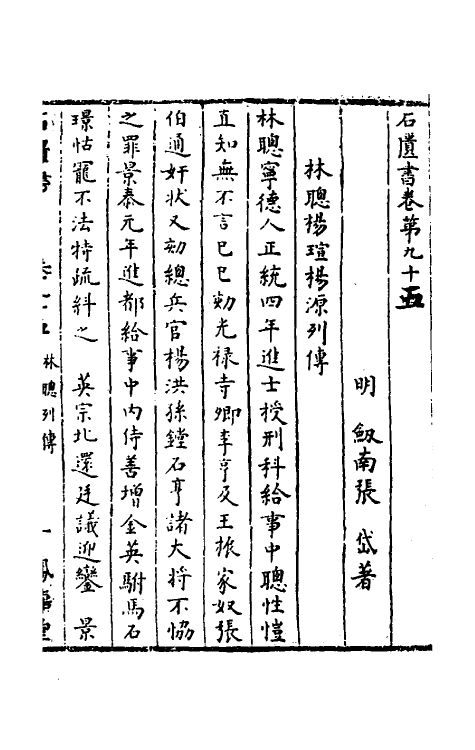 石匱書卷第九十五
明 劔南張 岱著
林聰楊瑄楊源列傳
林聰寧德人正統四年進士授刑科給事中聰性愷
直知無不言己巳劾光禄寺卿李亨及王振家奴張
伯通奸狀又劾總兵官楊洪孫鏜石亨諸大将不恊
之罪景泰元年進都給事中内侍善增金英駙馬石
璟怙寵不法特疏糾之 英宗北還廷議迎鑾 景
林聰列傳
一